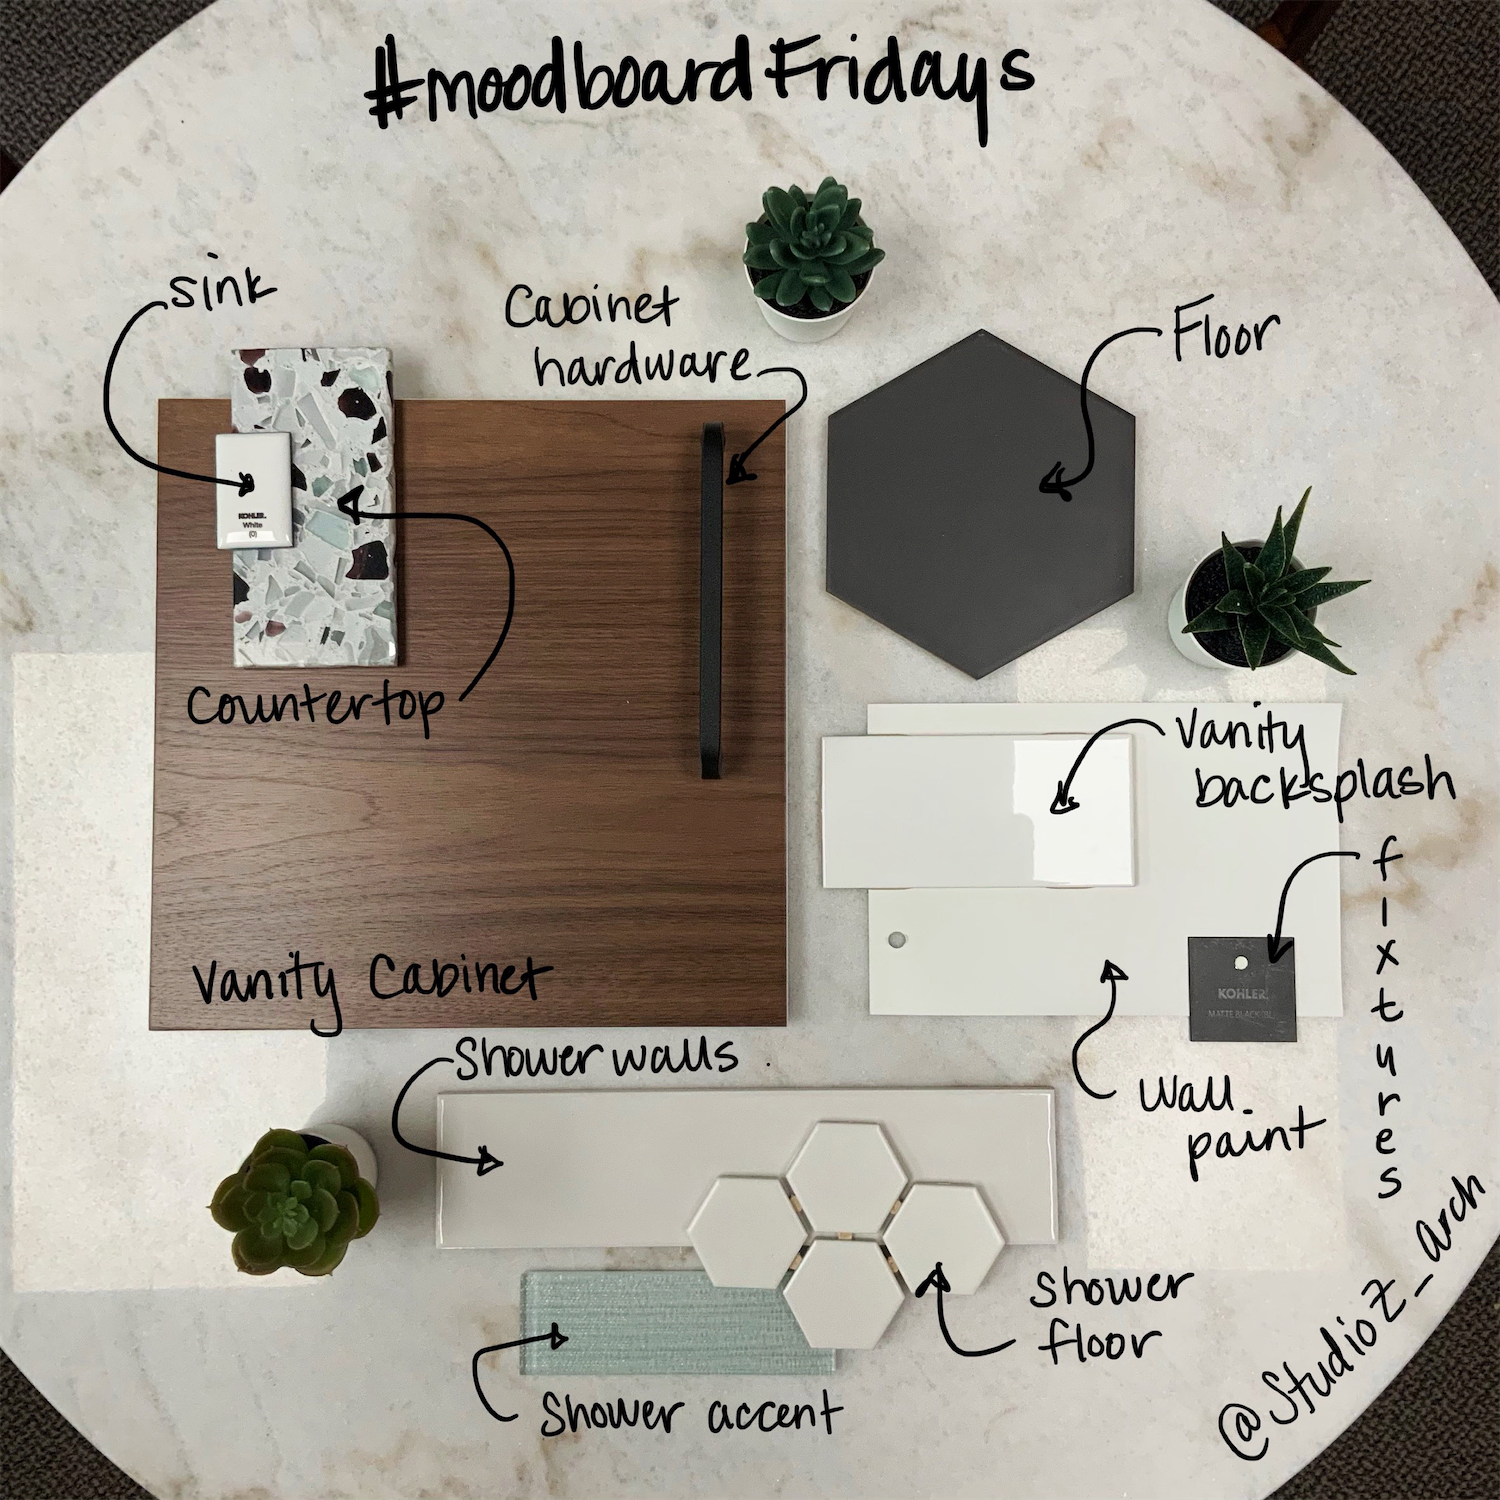 #moodboardFridays
sink
Cabinet
hardware
Floor
KOHLER.
White
(0)
Countertop
Vanity
backsplash
fixtures
Vanity Cabinet
KOHLER
MATTE BLACK
Shower walls
Wall
paint
Shower
floor
Shower accent
@StudioZ_arch